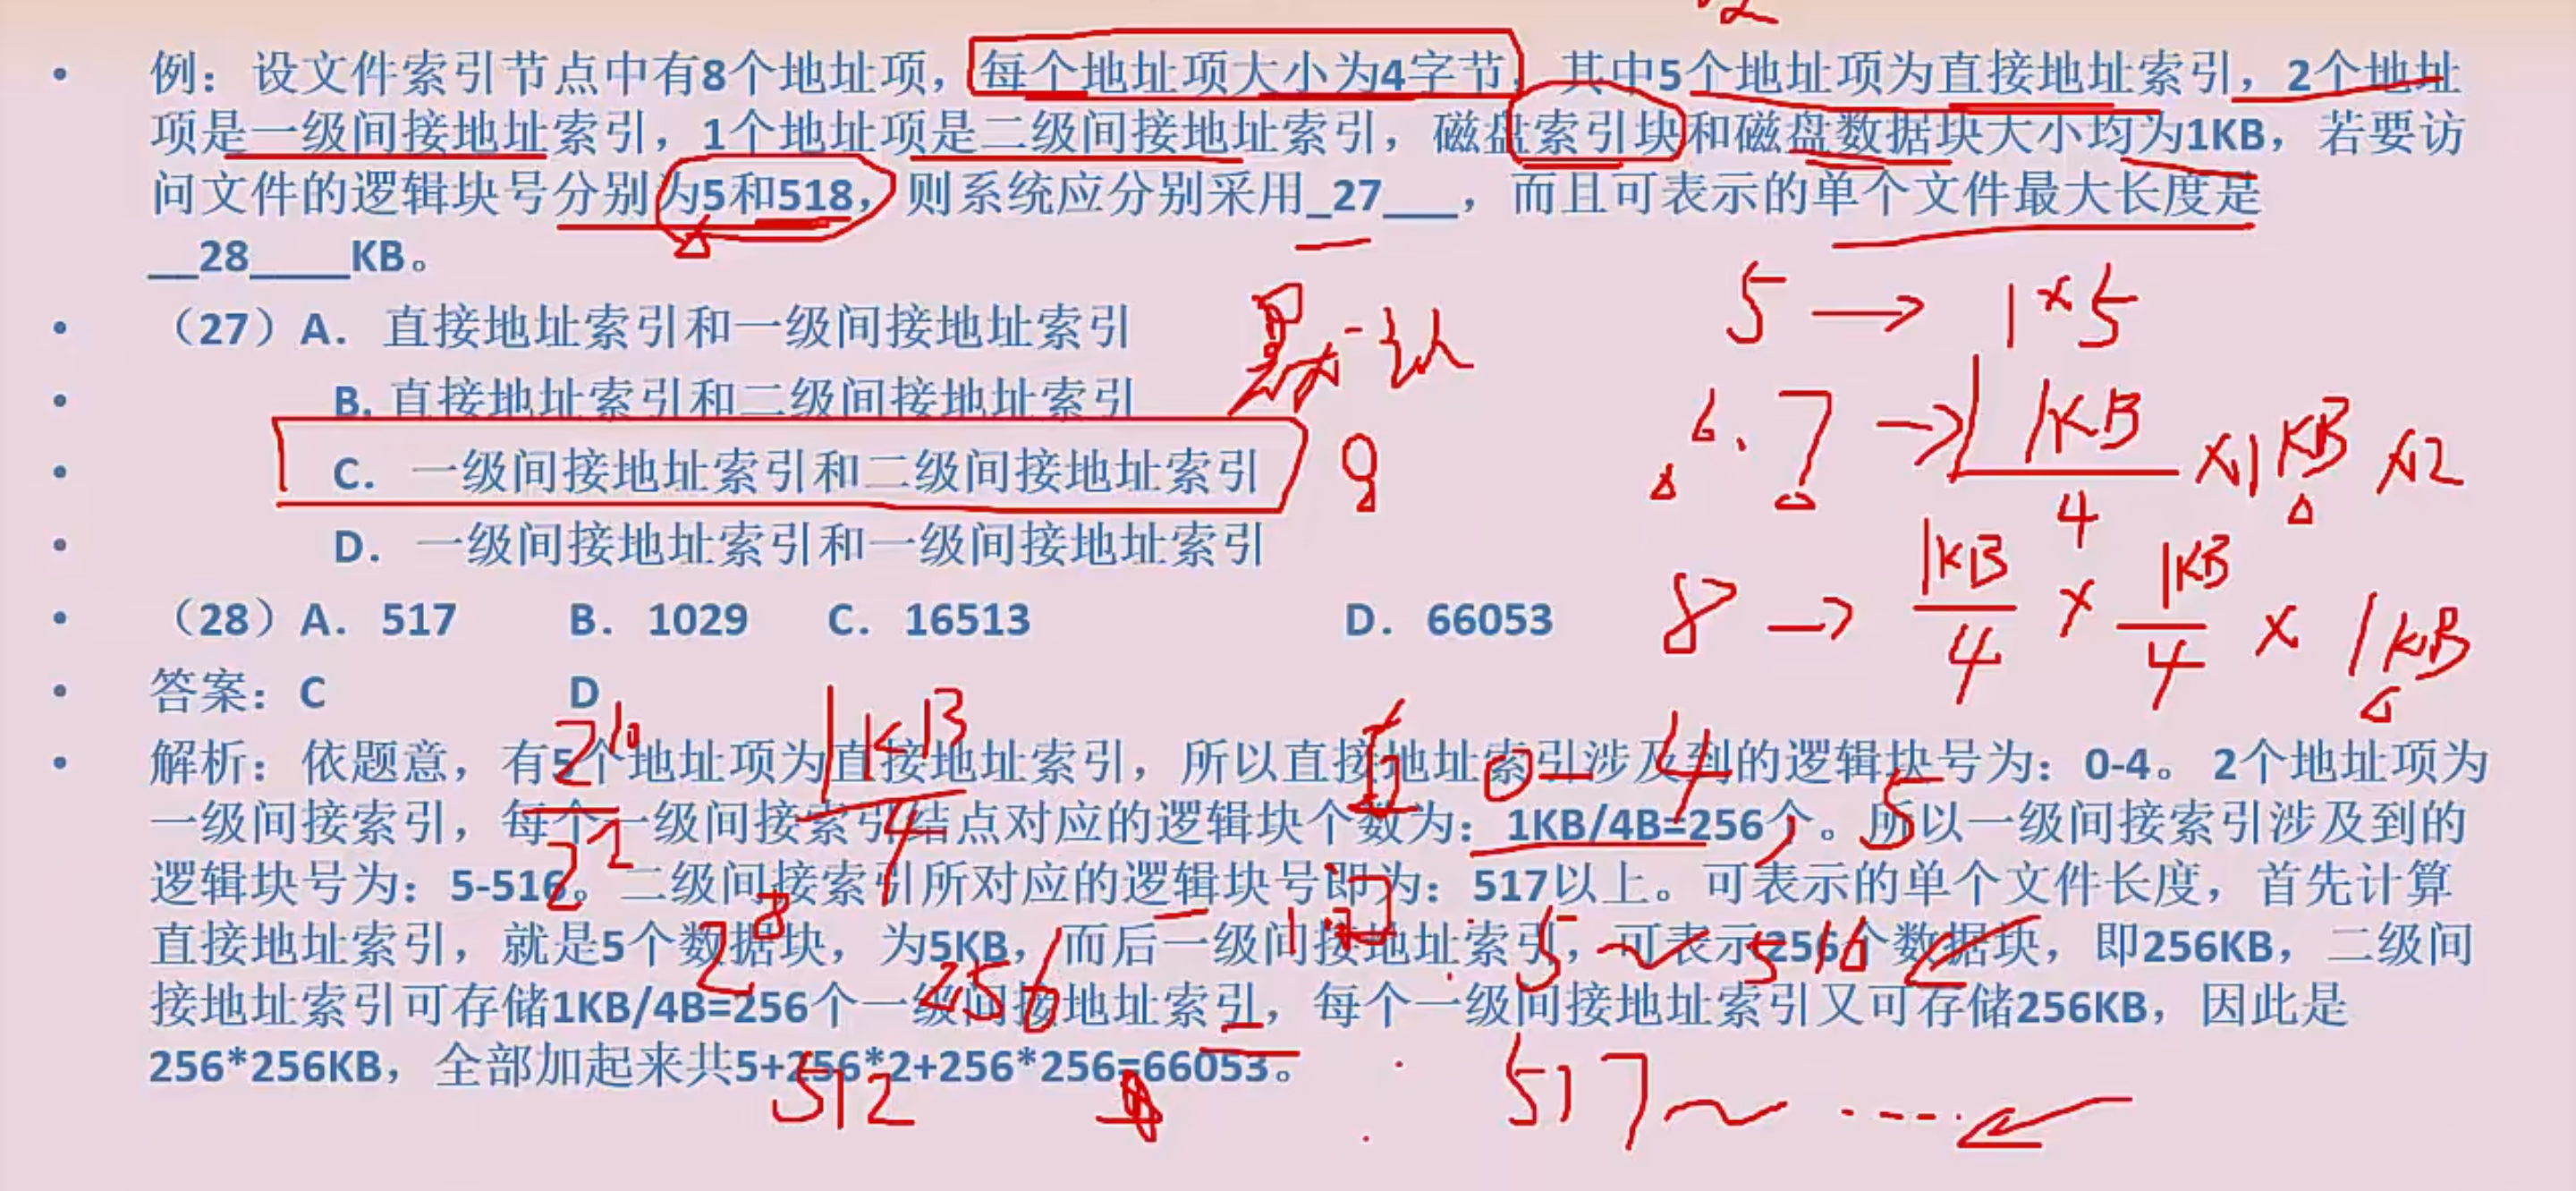 例：设文件索引节点中有8个地址项，每个地址项大小为4字节，其中5个地址项为直接地址索引，2个地址
项是一级间接地址索引，1个地址项是二级间接地址索引，磁盘索引块和磁盘数据块大小均为1KB，若要访
问文件的逻辑块号分别为5和518，则系统应分别采用_27___，而且可表示的单个文件最大长度是
__28____KB。
（27）A．直接地址索引和一级间接地址索引
B. 直接地址索引和二级间接地址索引
C．一级间接地址索引和二级间接地址索引
D．一级间接地址索引和一级间接地址索引
（28）A．517 B．1029 C．16513 D．66053
答案：C D
解析：依题意，有5个地址项为直接地址索引，所以直接地址索引涉及到的逻辑块号为：0-4。 2个地址项为
一级间接索引，每个一级间接索引结点对应的逻辑块个数为：1KB/4B=256个。所以一级间接索引涉及到的
逻辑块号为：5-516。二级间接索引所对应的逻辑块号即为：517以上。可表示的单个文件长度，首先计算
直接地址索引，就是5个数据块，为5KB，而后一级间接地址索引，可表示256个数据块，即256KB，二级间
接地址索引可存储1KB/4B=256个一级间接地址索引，每个一级间接地址索引又可存储256KB，因此是
256*256KB，全部加起来共5+256*2+256*256=66053。
5 → 1×5
6.7 → 1KB/4 ×1KB ×2
8 → 1KB/4 × 1KB/4 × 1KB
2^10/2^2
1KB/4
2^8
256
512
0-4
5
5~516
517~ ....